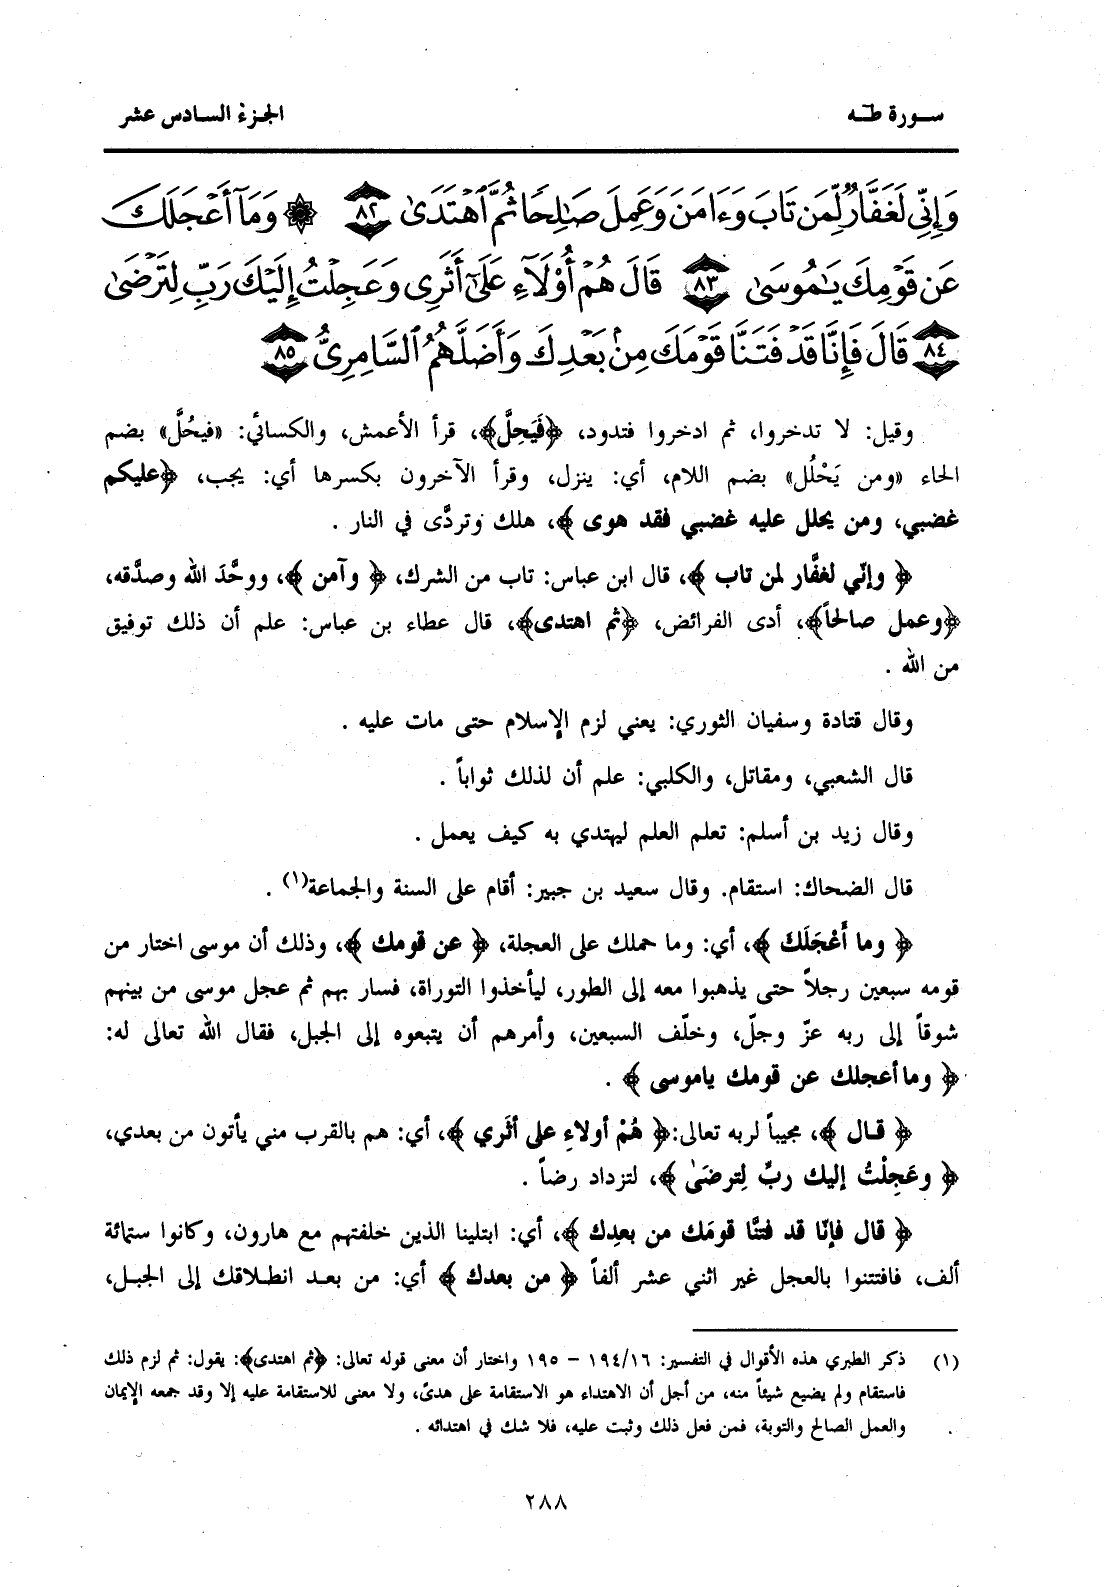 سورة طه
الجزء السادس عشر
وَإِنِّي لَغَفَّارٌ لِّمَن تَابَ وَءَامَنَ وَعَمِلَ صَٰلِحًا ثُمَّ ٱهْتَدَىٰ ٨٢ ۞ وَمَآ أَعْجَلَكَ
عَن قَوْمِكَ يَٰمُوسَىٰ ٨٣ قَالَ هُمْ أُوْلَآءِ عَلَىٰٓ أَثَرِى وَعَجِلْتُ إِلَيْكَ رَبِّ لِتَرْضَىٰ
٨٤ قَالَ فَإِنَّا قَدْ فَتَنَّا قَوْمَكَ مِنۢ بَعْدِكَ وَأَضَلَّهُمُ ٱلسَّامِرِىُّ ٨٥
وقيل: لا تدخروا، ثم ادخروا فتدود، ﴿فَيَحِلَّ﴾، قرأ الأعمش، والكسائي: «فيحُلَّ» بضم
الحاء «ومن يَحْلُل» بضم اللام، أي: ينزل، وقرأ الآخرون بكسرها أي: يجب، ﴿عليكم
غضبي، ومن يحلل عليه غضبي فقد هوى ﴾، هلك وتردَّى في النار .
﴿ وإنّي لغفَّار لمن تاب ﴾، قال ابن عباس: تاب من الشرك، ﴿ وآمن ﴾، ووحَّدَ الله وصدَّقه،
﴿وعمل صالحاً﴾، أدى الفرائض، ﴿ثم اهتدى﴾، قال عطاء بن عباس: علم أن ذلك توفيق
من الله .
وقال قتادة وسفيان الثوري: يعني لزم الإسلام حتى مات عليه .
قال الشعبي، ومقاتل، والكلبي: علم أن لذلك ثواباً .
وقال زيد بن أسلم: تعلم العلم ليهتدي به كيف يعمل .
قال الضحاك: استقام. وقال سعيد بن جبير: أقام على السنة والجماعة(١) .
﴿ وما أَعْجَلَكَ ﴾، أي: وما حملك على العجلة، ﴿ عن قومك ﴾، وذلك أن موسى اختار من
قومه سبعين رجلاً حتى يذهبوا معه إلى الطور، ليأخذوا التوراة، فسار بهم ثم عجل موسى من بينهم
شوقاً إلى ربه عزّ وجلّ، وخلّف السبعين، وأمرهم أن يتبعوه إلى الجبل، فقال الله تعالى له:
﴿ وما أعجلك عن قومك ياموسى ﴾ .
﴿ قال ﴾، مجيباً لربه تعالى:﴿ هُمْ أولاءِ على أثَري ﴾، أي: هم بالقرب مني يأتون من بعدي،
﴿ وعَجِلْتُ إليك ربِّ لِترضَىٰ ﴾، لتزداد رضاً .
﴿ قال فإنّا قد فتنَّا قومَك من بعدِك ﴾، أي: ابتلينا الذين خلفتهم مع هارون، وكانوا ستمائة
ألف، فافتتنوا بالعجل غير اثني عشر ألفاً ﴿ من بعدك ﴾ أي: من بعد انطلاقك إلى الجبل،
(١) ذكر الطبري هذه الأقوال في التفسير: ١٩٤/١٦ – ١٩٥ واختار أن معنى قوله تعالى: ﴿ثم اهتدى﴾: يقول: ثم لزم ذلك
فاستقام ولم يضيع شيئاً منه، من أجل أن الاهتداء هو الاستقامة على هدىً، ولا معنى للاستقامة عليه إلا وقد جمعه الإيمان
والعمل الصالح والتوبة، فمن فعل ذلك وثبت عليه، فلا شك في اهتدائه .
٢٨٨